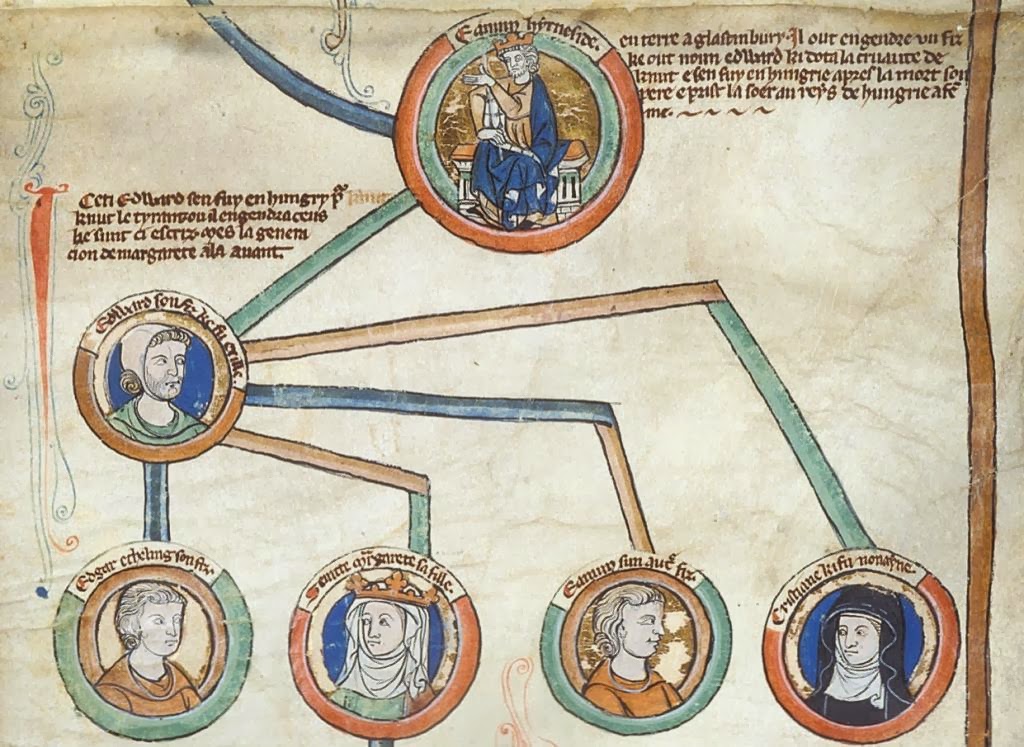 Eadmun hyrneside.
en terre a glastinbury. Il out engendre un fiz
ke out noun edward ki dota la cruaute de
knut e sen fuy en hungrie apres la mort son
pere e prist la soer au reys de hungrie a fe
me.
Ceti Edward sen fuy en hungry
knut le tyrant ou il engendra ceus
ke sunt ci escriz mes la genera
cion de margarete ala avant.
Edward son fiz ke fu exille.
Edgar etheling son fiz.
Seinte margarete sa fille.
Eadmun sun autre fiz.
Cristiane ki fu nonayne.